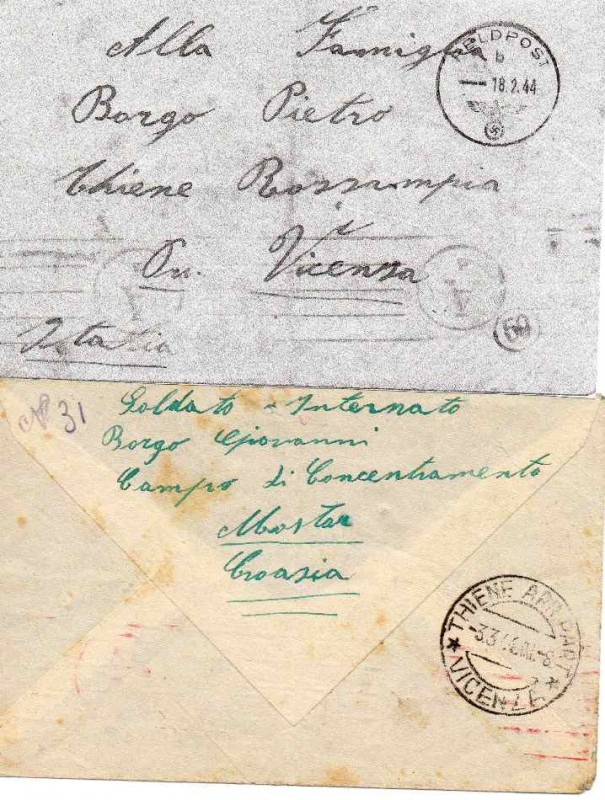 Alla Famiglia
Borgo Pietro
Thiene Rozzampia
Pr. Vicenza
Italia
FELDPOST
b
18.2.44
N 31
Soldato - Internato
Borgo Giovanni
Campo di Concentramento
Mostar
Croazia
THIENE ARR. PART
VICENZA